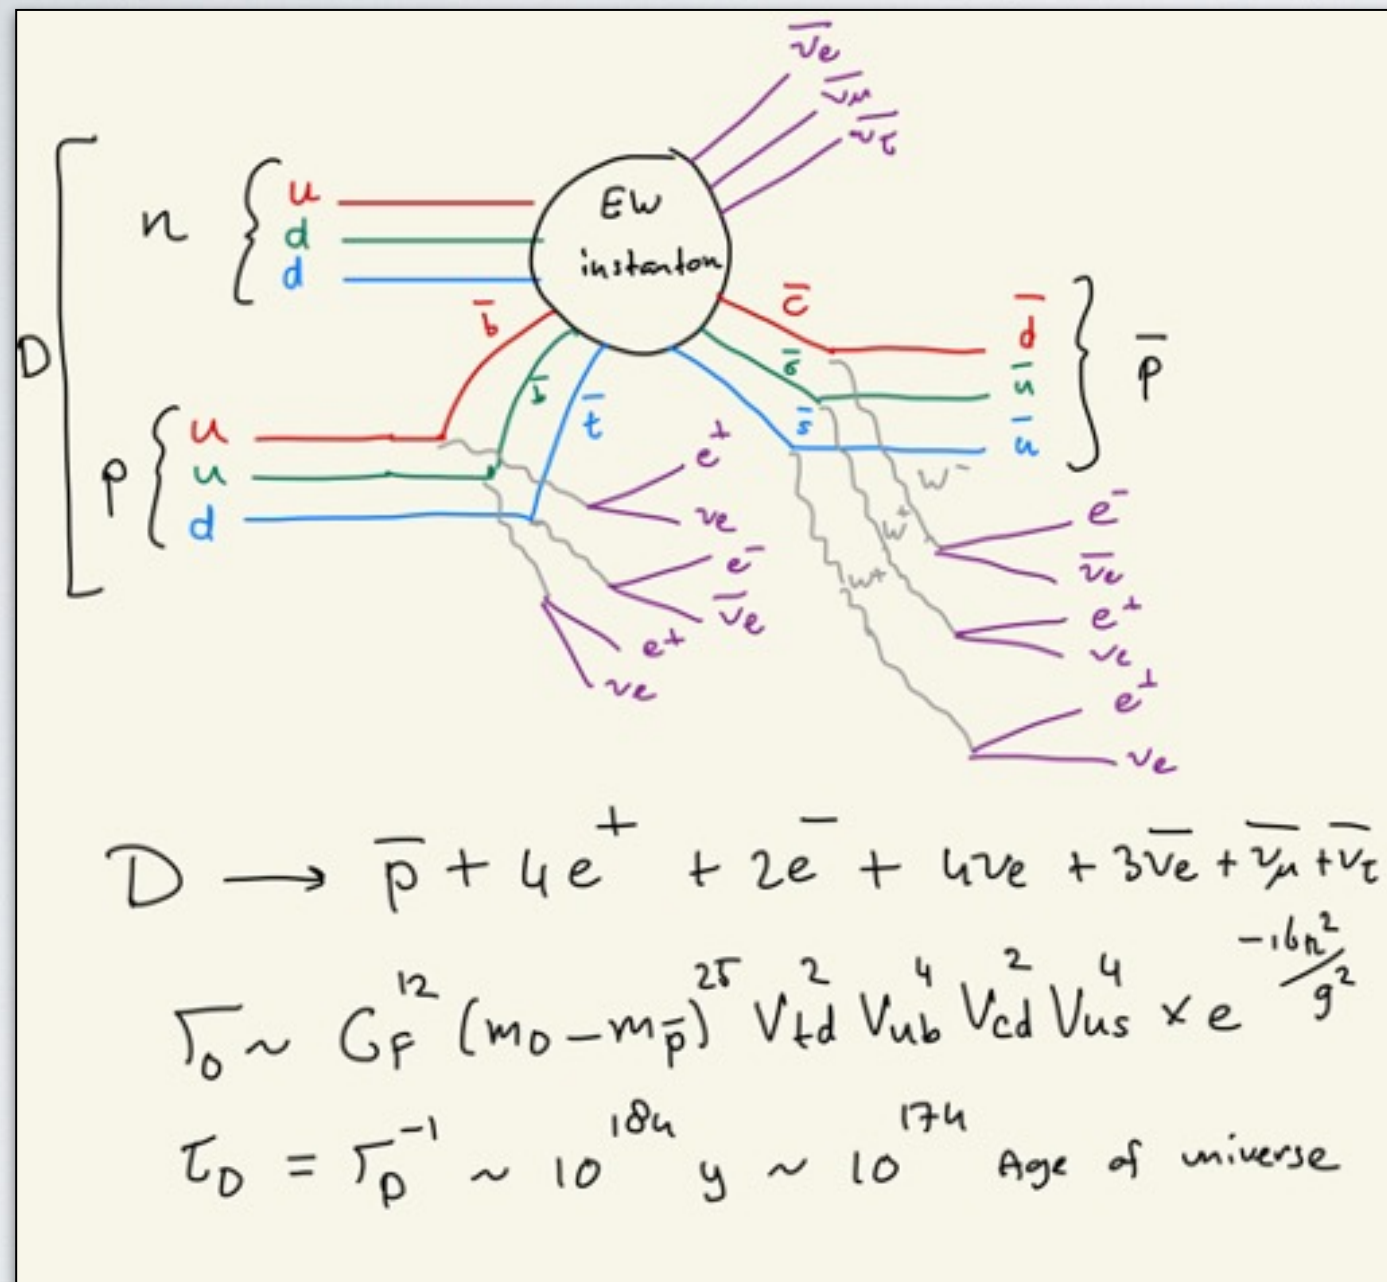 ν̄e
ν̄μ
ν̄τ
D
n
u
d
d
EW
instanton
p
u
u
d
b̄
b̄
t̄
c̄
s̄
s̄
d̄
ū
ū
p̄
e⁺
νe
e⁻
ν̄e
e⁺
νe
W⁻
W⁺
W⁺
e⁻
ν̄e
e⁺
νe
e⁺
νe
D → p̄ + 4e⁺ + 2e⁻ + 4νe + 3ν̄e + ν̄μ + ν̄τ
Γ_D ~ G_F¹² (m_D − m_p̄)²⁵ V_td² V_ub⁴ V_cd² V_us⁴ × e^(−16π²/g²)
τ_D = Γ_D⁻¹ ~ 10¹⁸⁴ y ~ 10¹⁷⁴ Age of universe